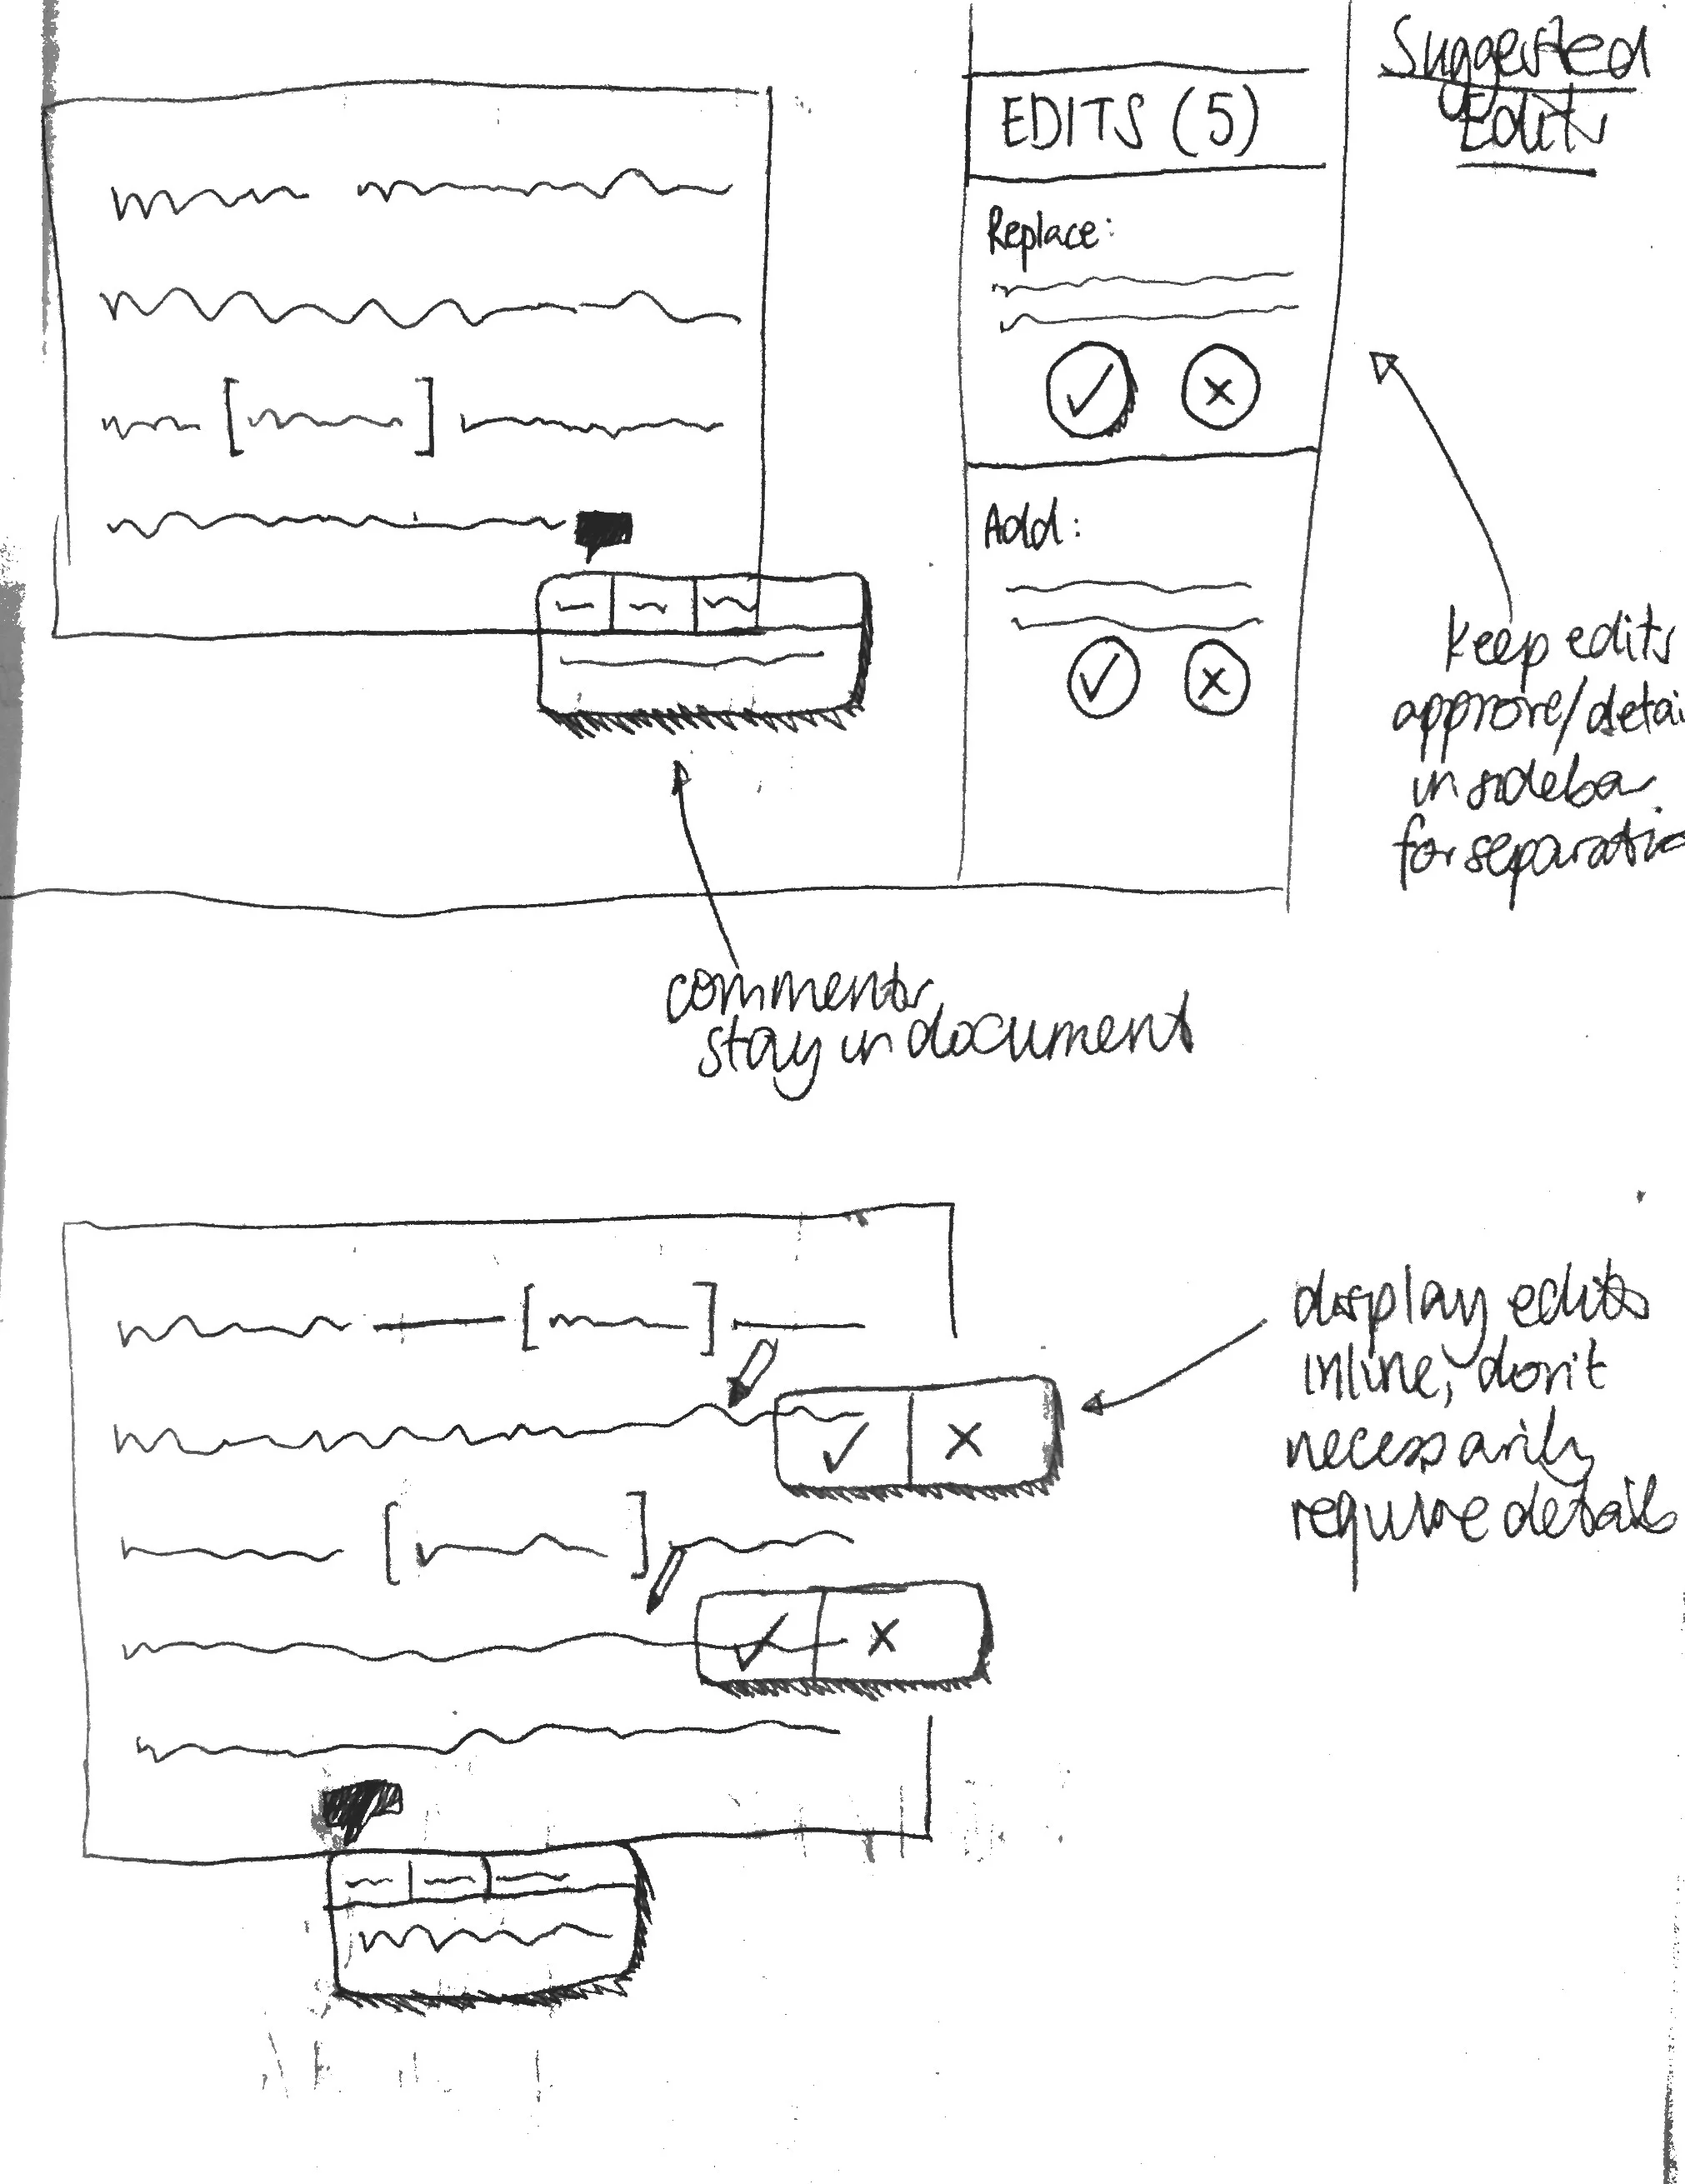 Suggested
Edits
EDITS (5)
Replace:
Add:
keep edits
approve/detai
in sidebar
for separatio
comments
stay in document
display edits
inline, don't
necessarily
require details